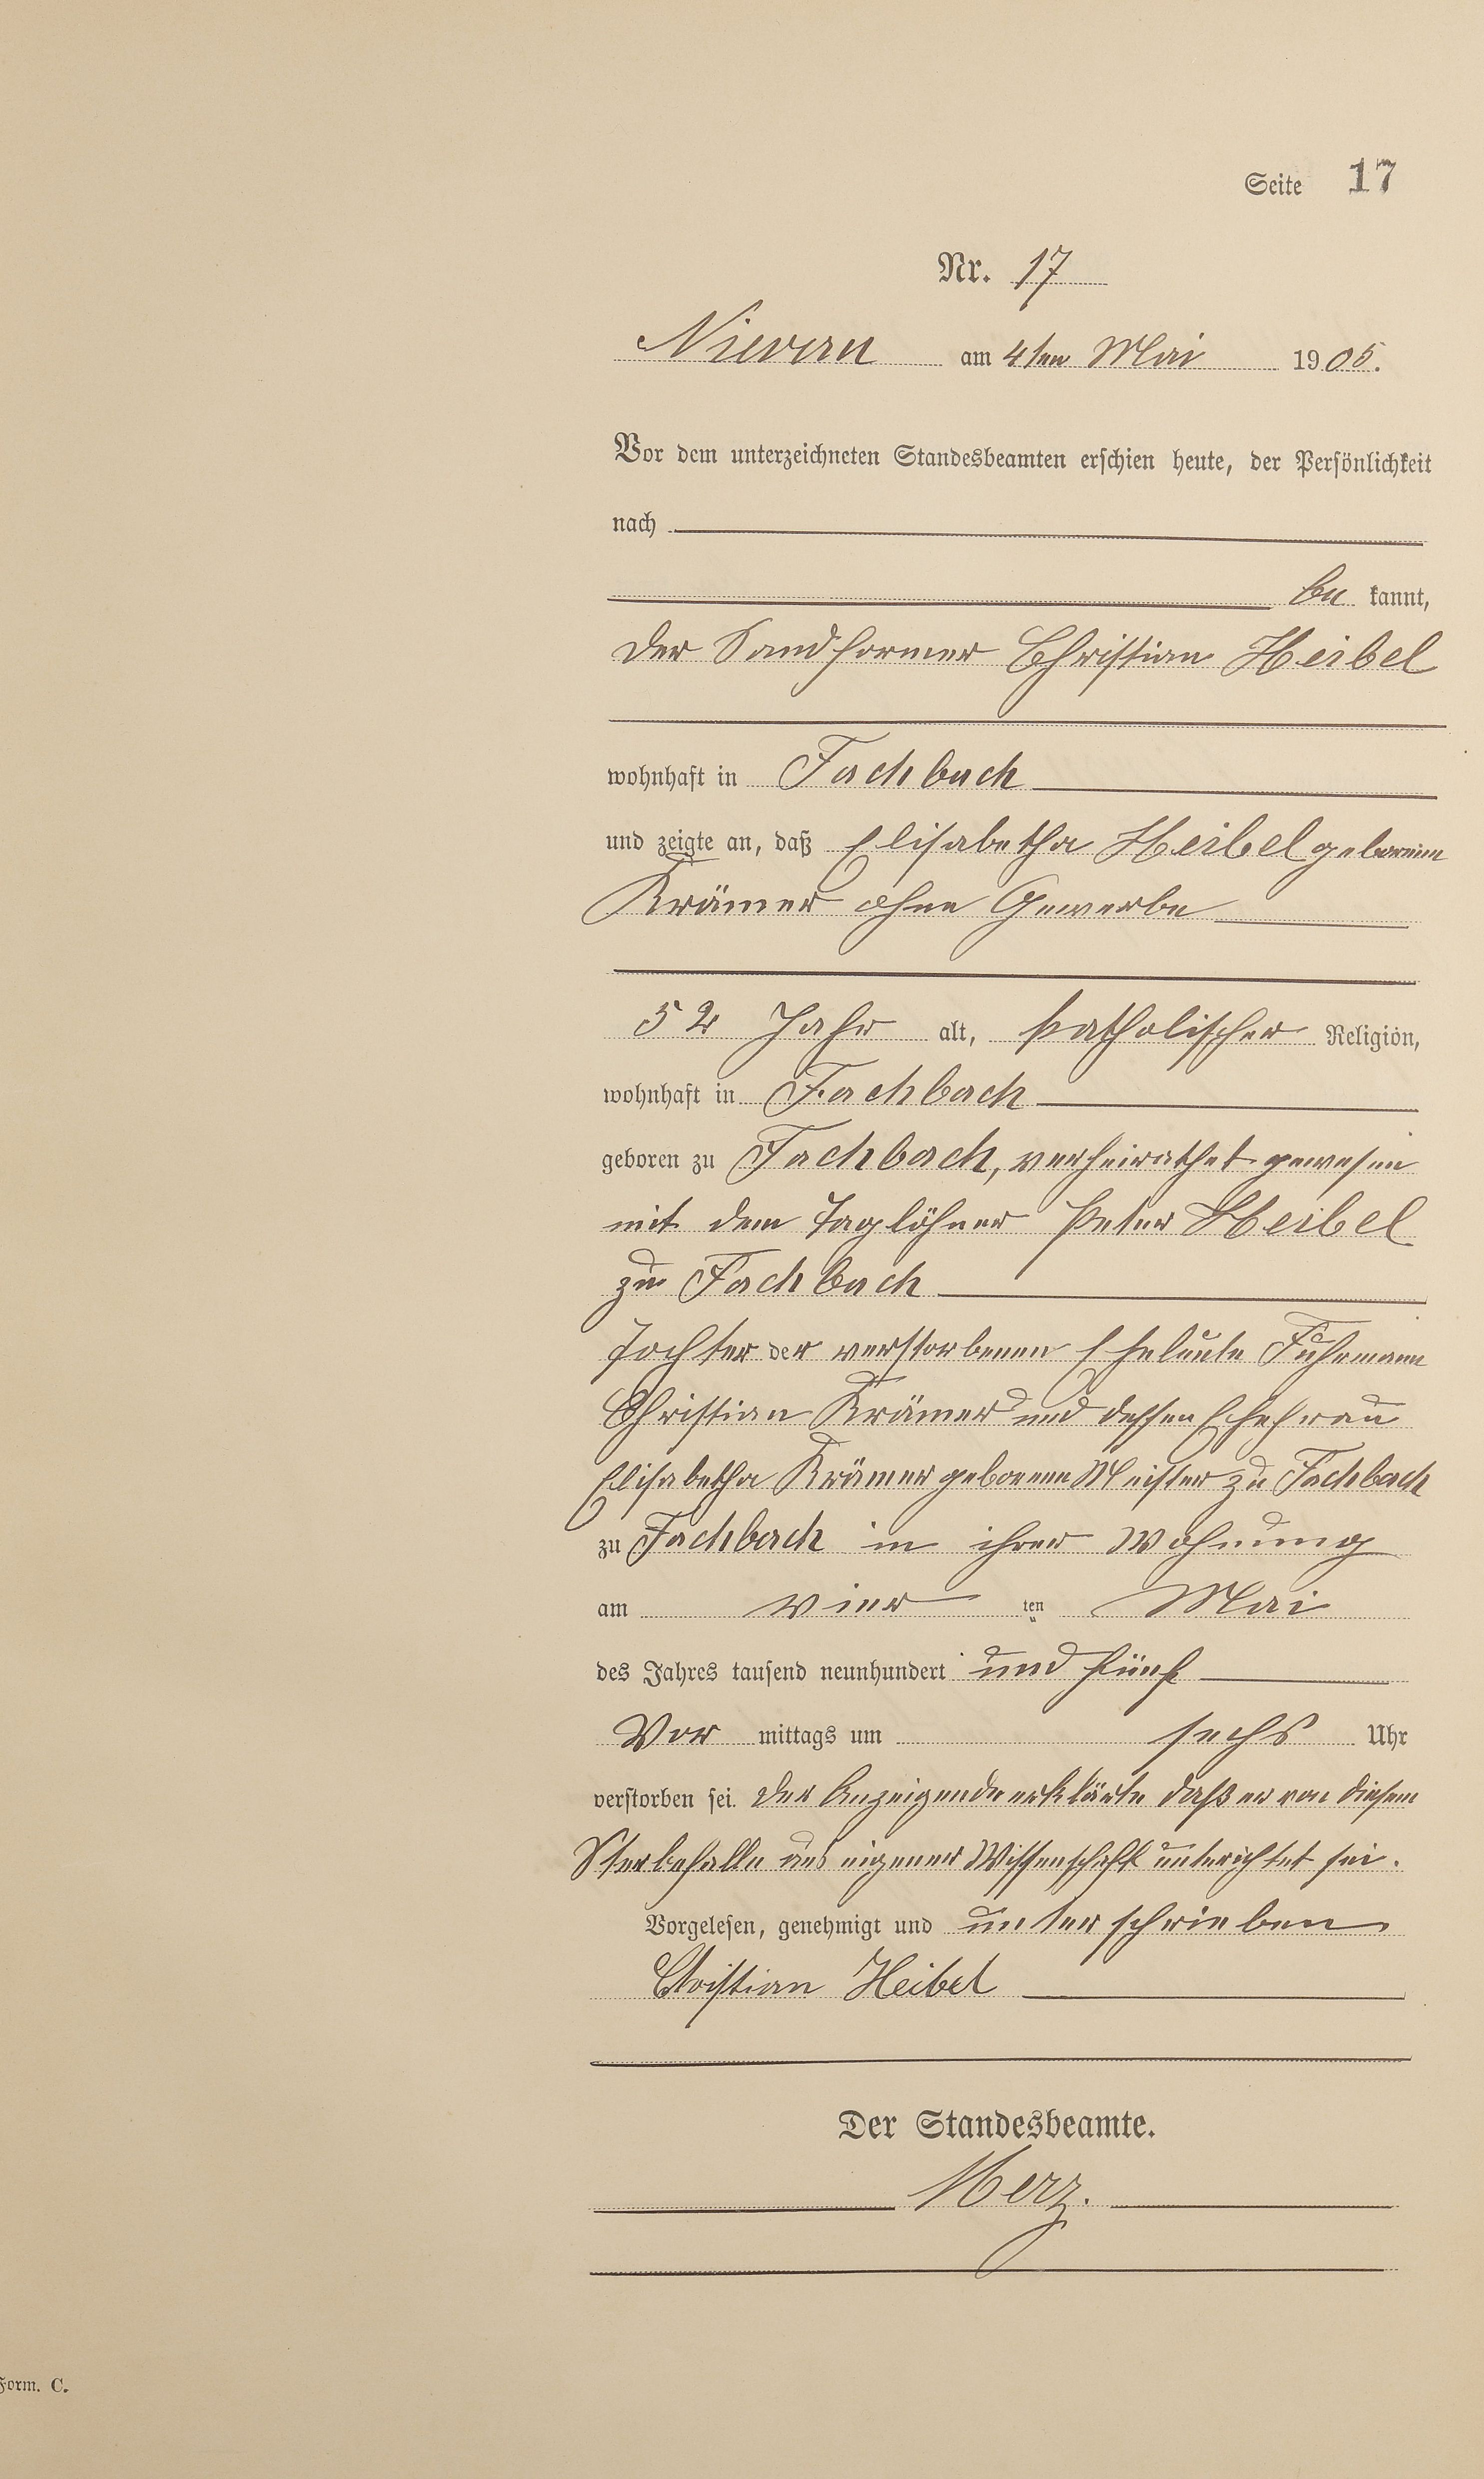 Seite 17
Nr. 17
Nievern am 4ten Mai 1905.
Vor dem unterzeichneten Standesbeamten erschien heute, der Persönlichkeit
nach
be kannt,
der Sandformer Christian Heibel
wohnhaft in Fachbach
und zeigte an, daß Elisabetha Heibel geborenen
Krämer ohne Gewerbe
52 Jahr alt, katholischer Religion,
wohnhaft in Fachbach
geboren zu Fachbach, verheirathet gewesen
mit dem Taglöhner Peter Heibel
zu Fachbach
Tochter der verstorbenen Eheleute Fuhrmann
Christian Krämer und dessen Ehefrau
Elisabetha Krämer geborenen Meister zu Fachbach
zu Fachbach in ihrer Wohnung
am vier ten Mai
des Jahres tausend neunhundert und fünf
Vor mittags um sechs Uhr
verstorben sei. Der Anzeigende erklärte daß er von diesem
Sterbefalle aus eigener Wissenschaft unterichtet sei.
Vorgelesen, genehmigt und unterschrieben
Christian Heibel
Der Standesbeamte.
Merz.
Form. C.